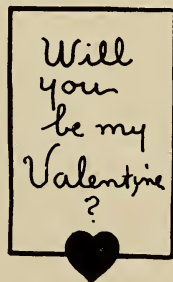 Will
you
be my
Valentine
?